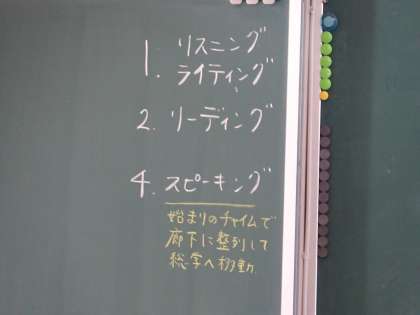 1. リスニング
ライティング
2. リーディング
4. スピーキング
始まりのチャイムで
廊下に整列して
総学へ移動